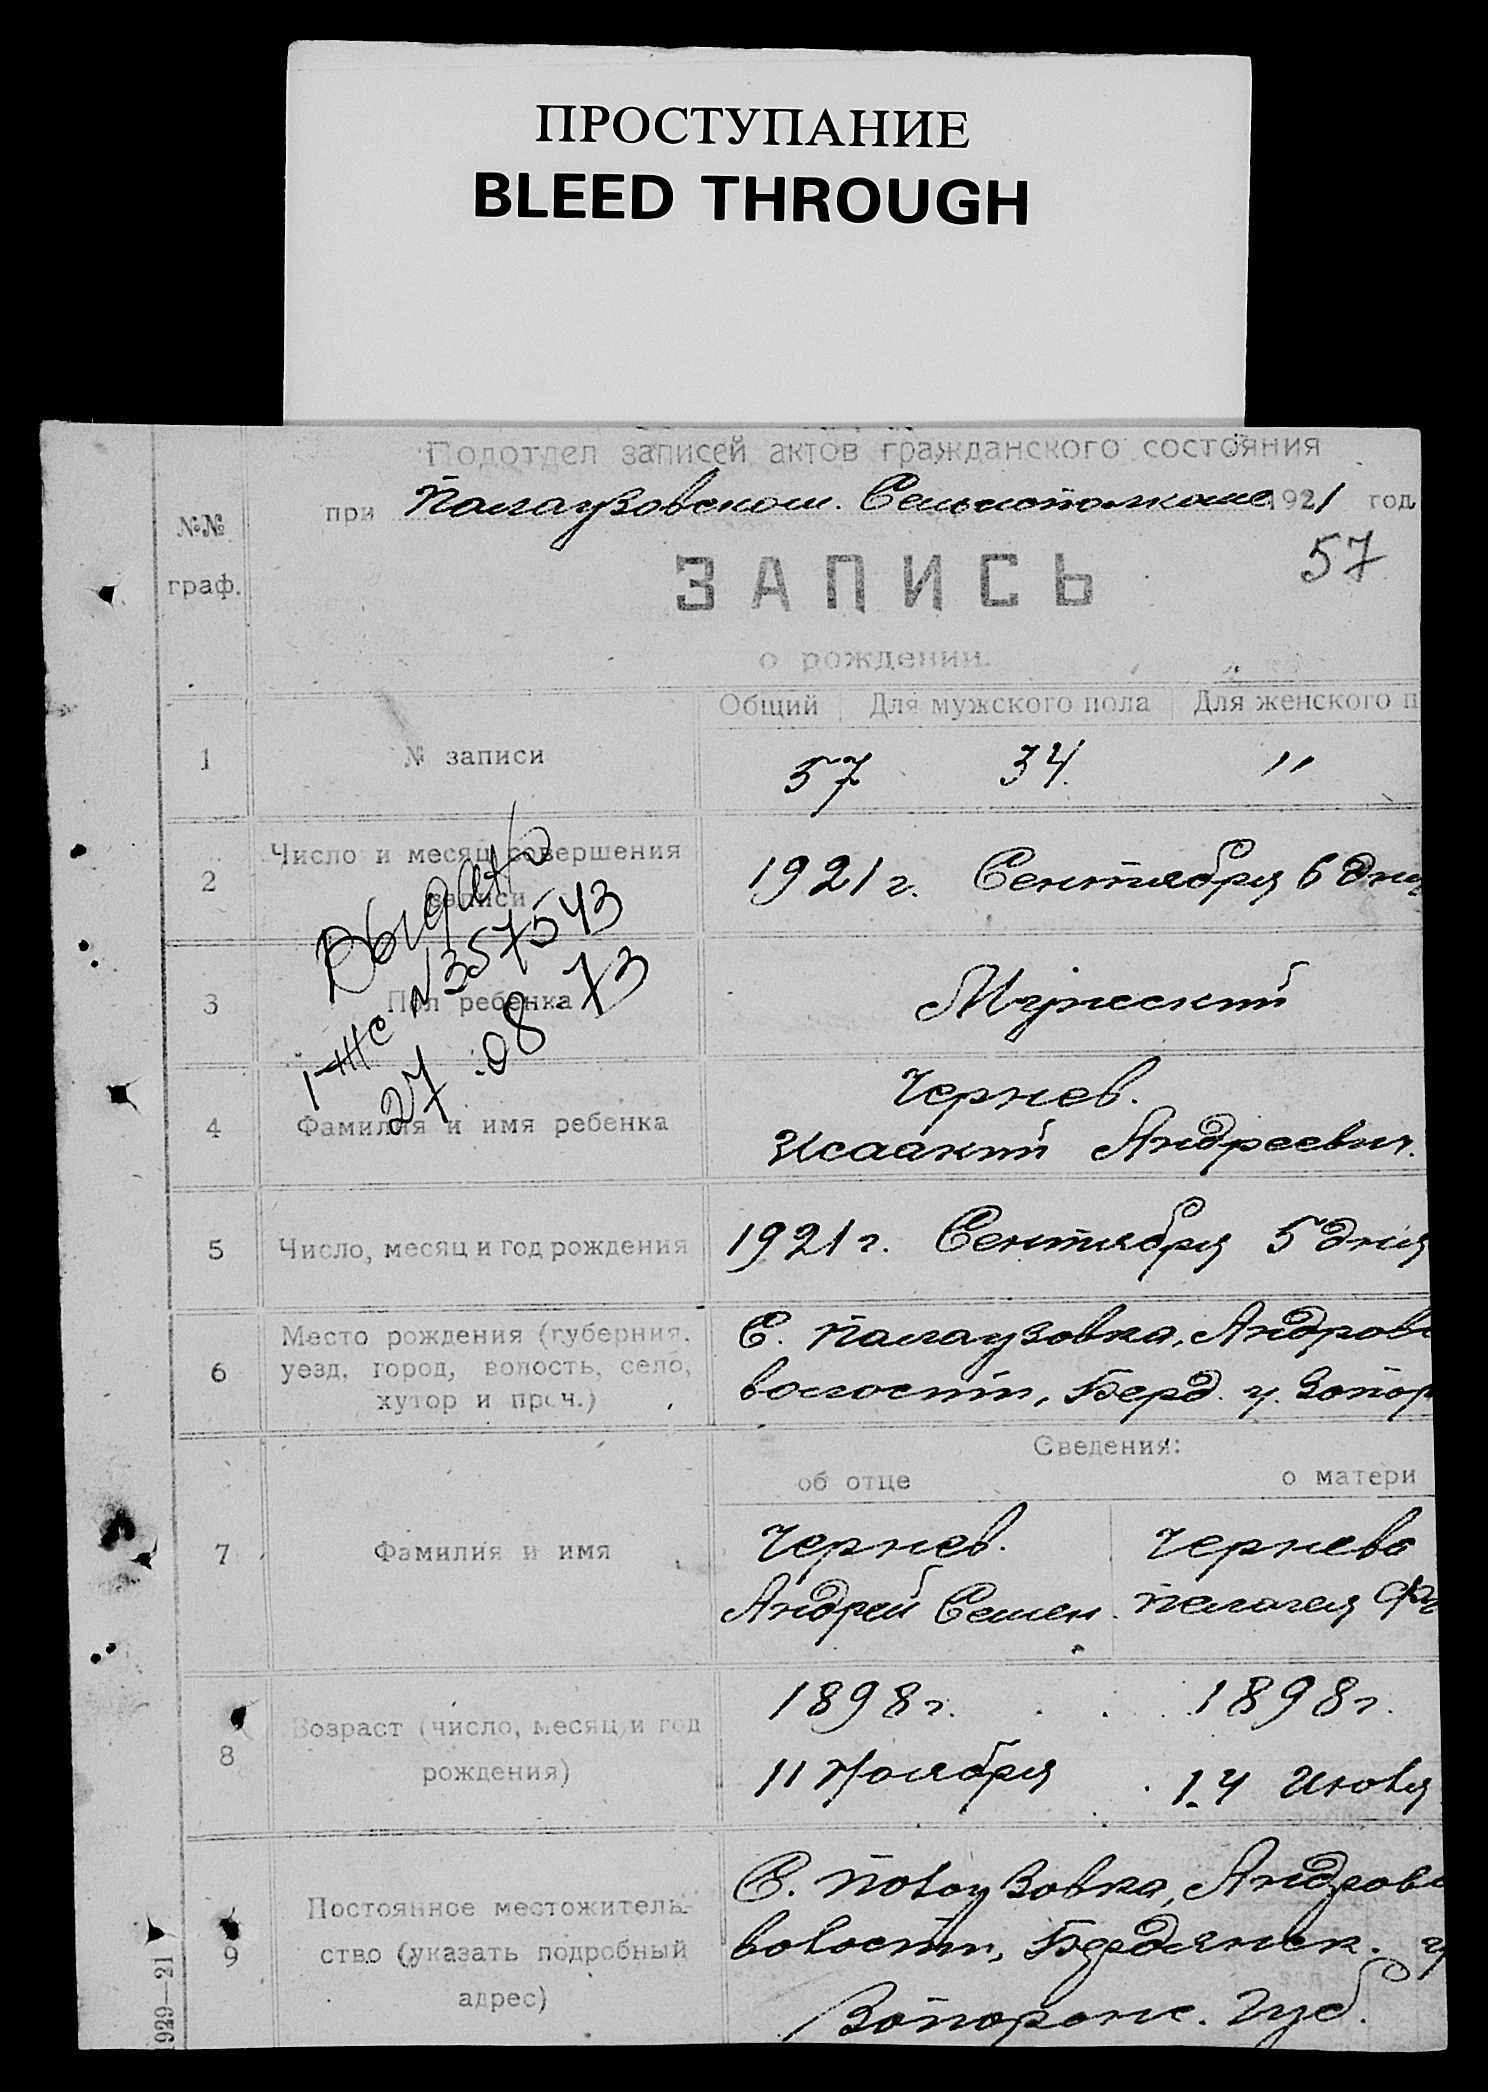 ПРОСТУПАНИЕ
BLEED THROUGH
Подотдел записей актов гражданского состояния
при Палаузовском. Сельисполкоме 1921 год
№№
граф.
57
ЗАПИСЬ
о рождении.
Общий Для мужского пола Для женского п
1 № записи 57 34. "
2 Число и месяц совершения
записи
1921 г. Сентября 6 дня
3 Пол ребенка Мужский
4 Фамилия и имя ребенка
Чернев.
Исаакий Андреевич.
Выдато
І-ЖС №357543
27.08.73
5 Число, месяц и год рождения 1921 г. Сентября 5 дня
6 Место рождения (губерния,
уезд, город, волость, село,
хутор и проч.)
С. Палаузовка, Андров
волости, Берд. у. Запор
Сведения:
об отце о матери
7 Фамилия и имя
Чернев. Чернева
Андрей Семен. Пелагея
8 Возраст (число, месяц и год
рождения)
1898 г. 1898 г.
11 Ноября 14 Июля
9 Постоянное местожитель-
ство (указать подробный
адрес)
С. Палаузовка, Андров
волости, Бердянск. у
Запорож. Губ.
929—21